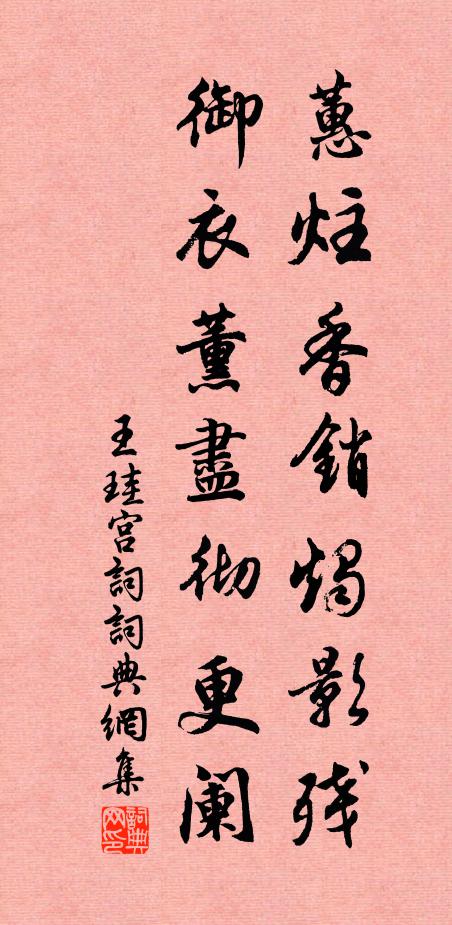 蕙炷香銷燭影残
御衣薰盡彻更阑
王珪宫詞詞典網集
詞典网印